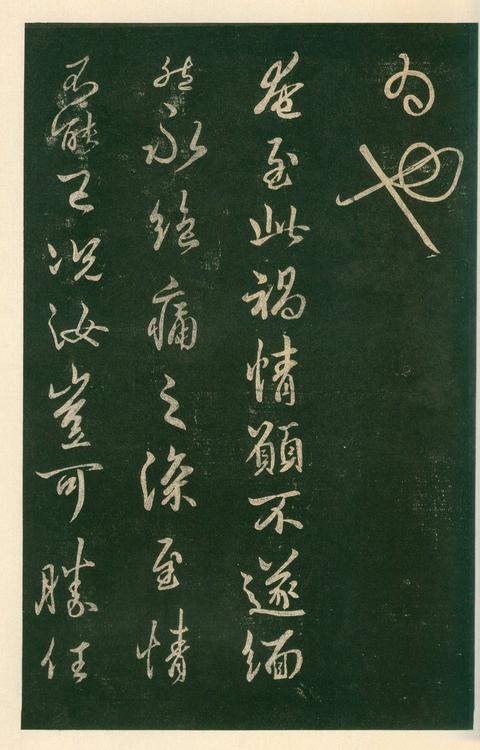 为也
奄至此禍情願不遂緬
然永絕痛之深至情
不能已況汝豈可勝任